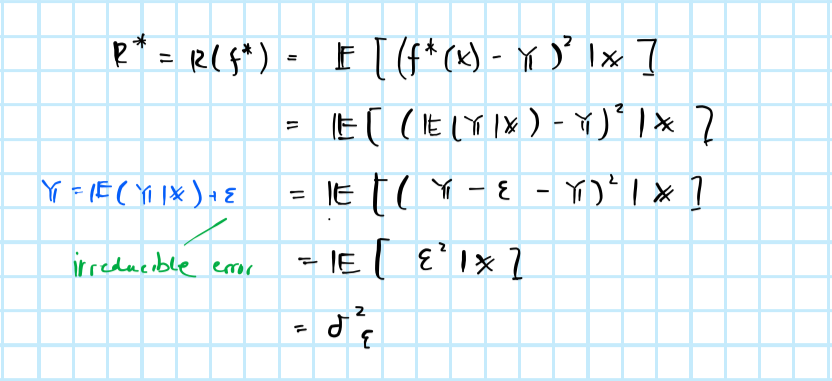 R* = R(f*) = 𝔼 [(f*(𝕏) - 𝕐)² | 𝕏]
= 𝔼[(𝔼(𝕐|𝕏) - 𝕐)² | 𝕏]
𝕐 = 𝔼(𝕐|𝕏) + ε = 𝔼[(𝕐 - ε - 𝕐)² | 𝕏]
irreducible error = 𝔼[ε² | 𝕏]
= σ²_ε